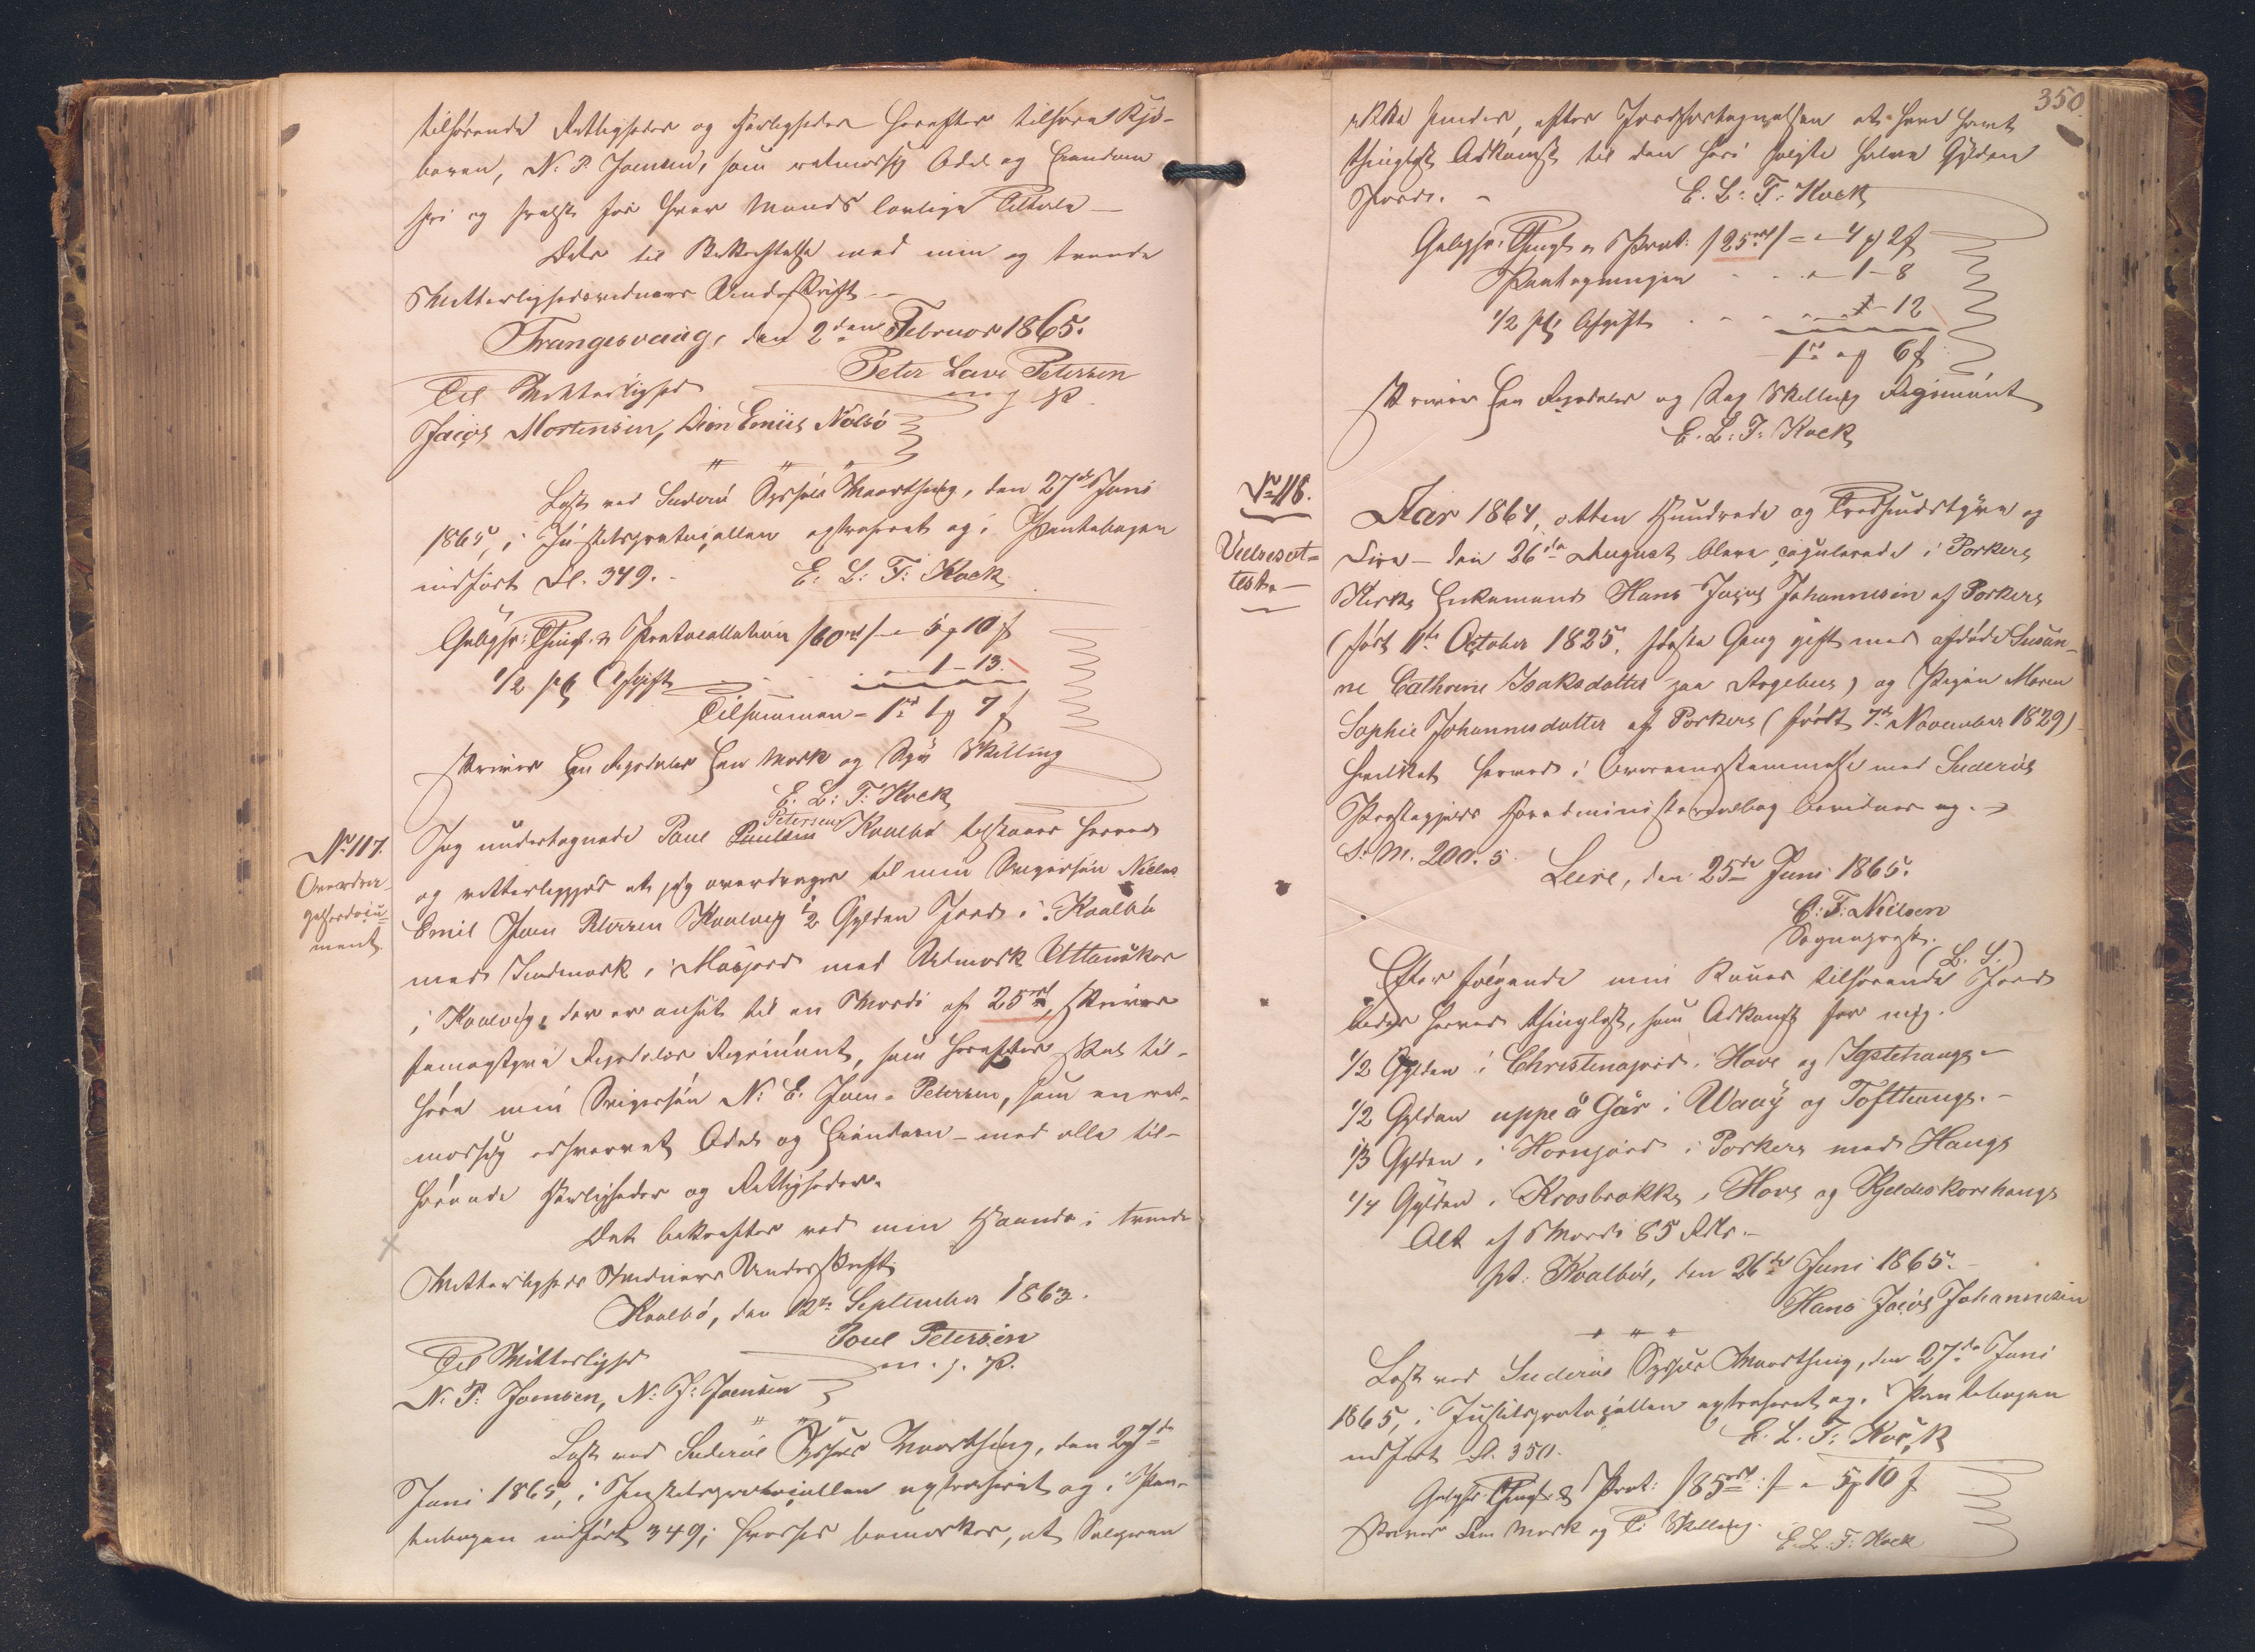 tilhørende Rettigheder og Herligheder herefter tilhøre Kjø-
beren, N. P. Joensen, som retmæssig Odel og Eiendom
fri og frelst for hver Mands lovlige Tiltale —
Dets til Bekræftelse med min og tvende
Vitterlighedsvidners Underskrift. —
Trangesvaag, den 2den Februar 1865.
Peter Lave Petersen
Til Vitterlighed m. f. P.
Jacob Mortensen, Dion Emiis Nolsö
Læst ved Suderø Syssels Vaarthing, den 27de Juni
1865, i Justitsprotocollen extraheret og i Pantebogen
indført Fol. 349. - E. L: F: Kock
Gebyhr: Thingl. & Protocollation /60rd/ — 5 ȝ 10 ß
1/2 pCt Afgift — 1 — 13.
Tilsammen — 1rd 1 ȝ 7 ß
skriver Een Rigsdaler Een Mark og Syv Skilling
E. L: F: Kock
No 117.
Overdra-
gelsesdocu-
ment.
Jeg undertegnede Poul Paulsen Petersen Kvalbø tilstaaer herved
og vitterliggjør at jeg overdrager til min Svigersøn Niclas
Emil Joen Petersen Kvalvig 1/2 Gylden Jord i Kvalbø
med Indmark i Maajord med Udmark Uttanåker
i Kvalvig, der er ansat til en Værdi af 25rd, skriver
femogtyve Rigsdaler Rigsmønt, som herefter skal til-
høre min Svigersøn N: E. Joen Petersen, som en ret-
mæssig erhvervet Odel og Eiendom — med alle til-
hørende Herligheder og Rettigheder.
Det bekræfter ved min Haand i tvende
Vitterligheds Vidners Underskrift
Kvalbø, den 12te September 1863.
Poul Petersen
Til Vitterlighed m. f. P.
N: P: Joensen, N: J: Joensen
Læst ved Suderøe Syssels Vaarthing, den 27de
Juni 1865, i Justitsprotocollen extraheret og i Pan-
tebogen indført 349; hvorhos bemærkes, at Sælgeren
350.
ikke findes, efter Jordfortegnelsen at have havt
thinglyst Adkomst til den heri solgte halve Gylden
Jord. - E. L: F: Kock
Gebyhr: Thingl. & Prot: /25rd/ — 4 ȝ 2 ß
Paategningen — 1 — 8
1/2 pCt Afgift — 12
1rd ȝ 6 ß
skriver Een Rigsdaler og Sex Skilling Rigsmønt
E. L: F: Kock
No 118.
Vielsesat-
test. —
Aar 1864, atten Hundrede og Tredsindstyve og
Fire — den 26de August bleve copulerede i Porkere
Kirke Enkemand Hans Jacob Johannesen af Porkere
(født 11te October 1825, første Gang gift med afdøde Susan-
ne Cathrine Isaksdatter paa Argeboe) og Pigen Maren
Sophie Johannesdatter af Porkere (født 7de November 1829)
hvilket herved i Overeensstemmelse med Suderøes
Præstegjelds Hovedministerialbog bevidnes.
S: M. 200. 5. Leire, den 25de Juni 1865.
C: F: Nielsen
Sognepræst.
(L. S.)
Efter følgende min Kones tilhørende Jord
bedes herved thinglyst, som Adkomst for mig.
1/2 Gylden i Christenajord i Hove og Igstehauge —
1/2 Gylden uppe å Går i Waaÿ og Tofthauge. —
1/3 Gylden i Hornjord i Porkere med Hauge
1/4 Gylden i Krosbrøkke i Hove og Kjeldeskorehauge
Alt af Værdi 85 Rdlr. —
pt: Kvalbøe, den 26de Juni 1865. —
Hans Jacob Johannesen
Læst ved Suderøe Syssels Vaarthing, den 27de Juni
1865, i Justitsprotocollen extraheret og i Pantebogen
indført Fol. 350. E. L. F: Kock
Gebyhr Thingl. & Prot: /85rd/ — 5 ȝ 10 ß
skriver Fem Mark og Ti Skilling. E. L. F: Kock